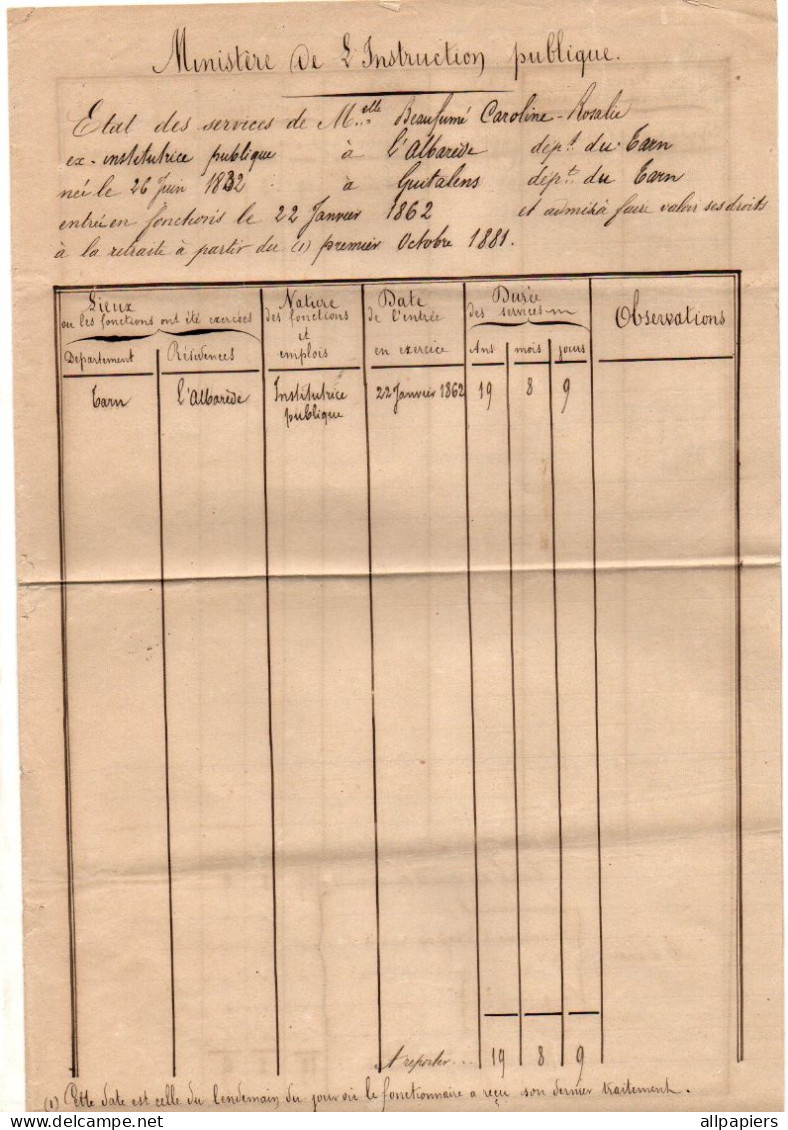 Ministère de L'Instruction publique.
Etat des services de Melle Beaufumé Caroline-Rosalie
ex-institutrice publique à l'Albarède dépt. du Tarn
née le 26 Juin 1832 à Guitalens dépt. du Tarn
entrée en fonctions le 22 Janvier 1862 et admise à faire valoir ses droits
à la retraite à partir du (1) premier Octobre 1881.
Lieux
ou les fonctions ont été exercées
Département
Résidences
Nature
des fonctions
et
emplois
Date
de l'entrée
en exercice
Durée
des services
Ans mois jours
Observations
Tarn L'Albarède Institutrice 22 Janvier 1862 19 8 9
publique
A reporter... 19 8 9
(1) Cette date est celle du lendemain du jour où le fonctionnaire a reçu son dernier traitement.
delcampe.net
allpapiers